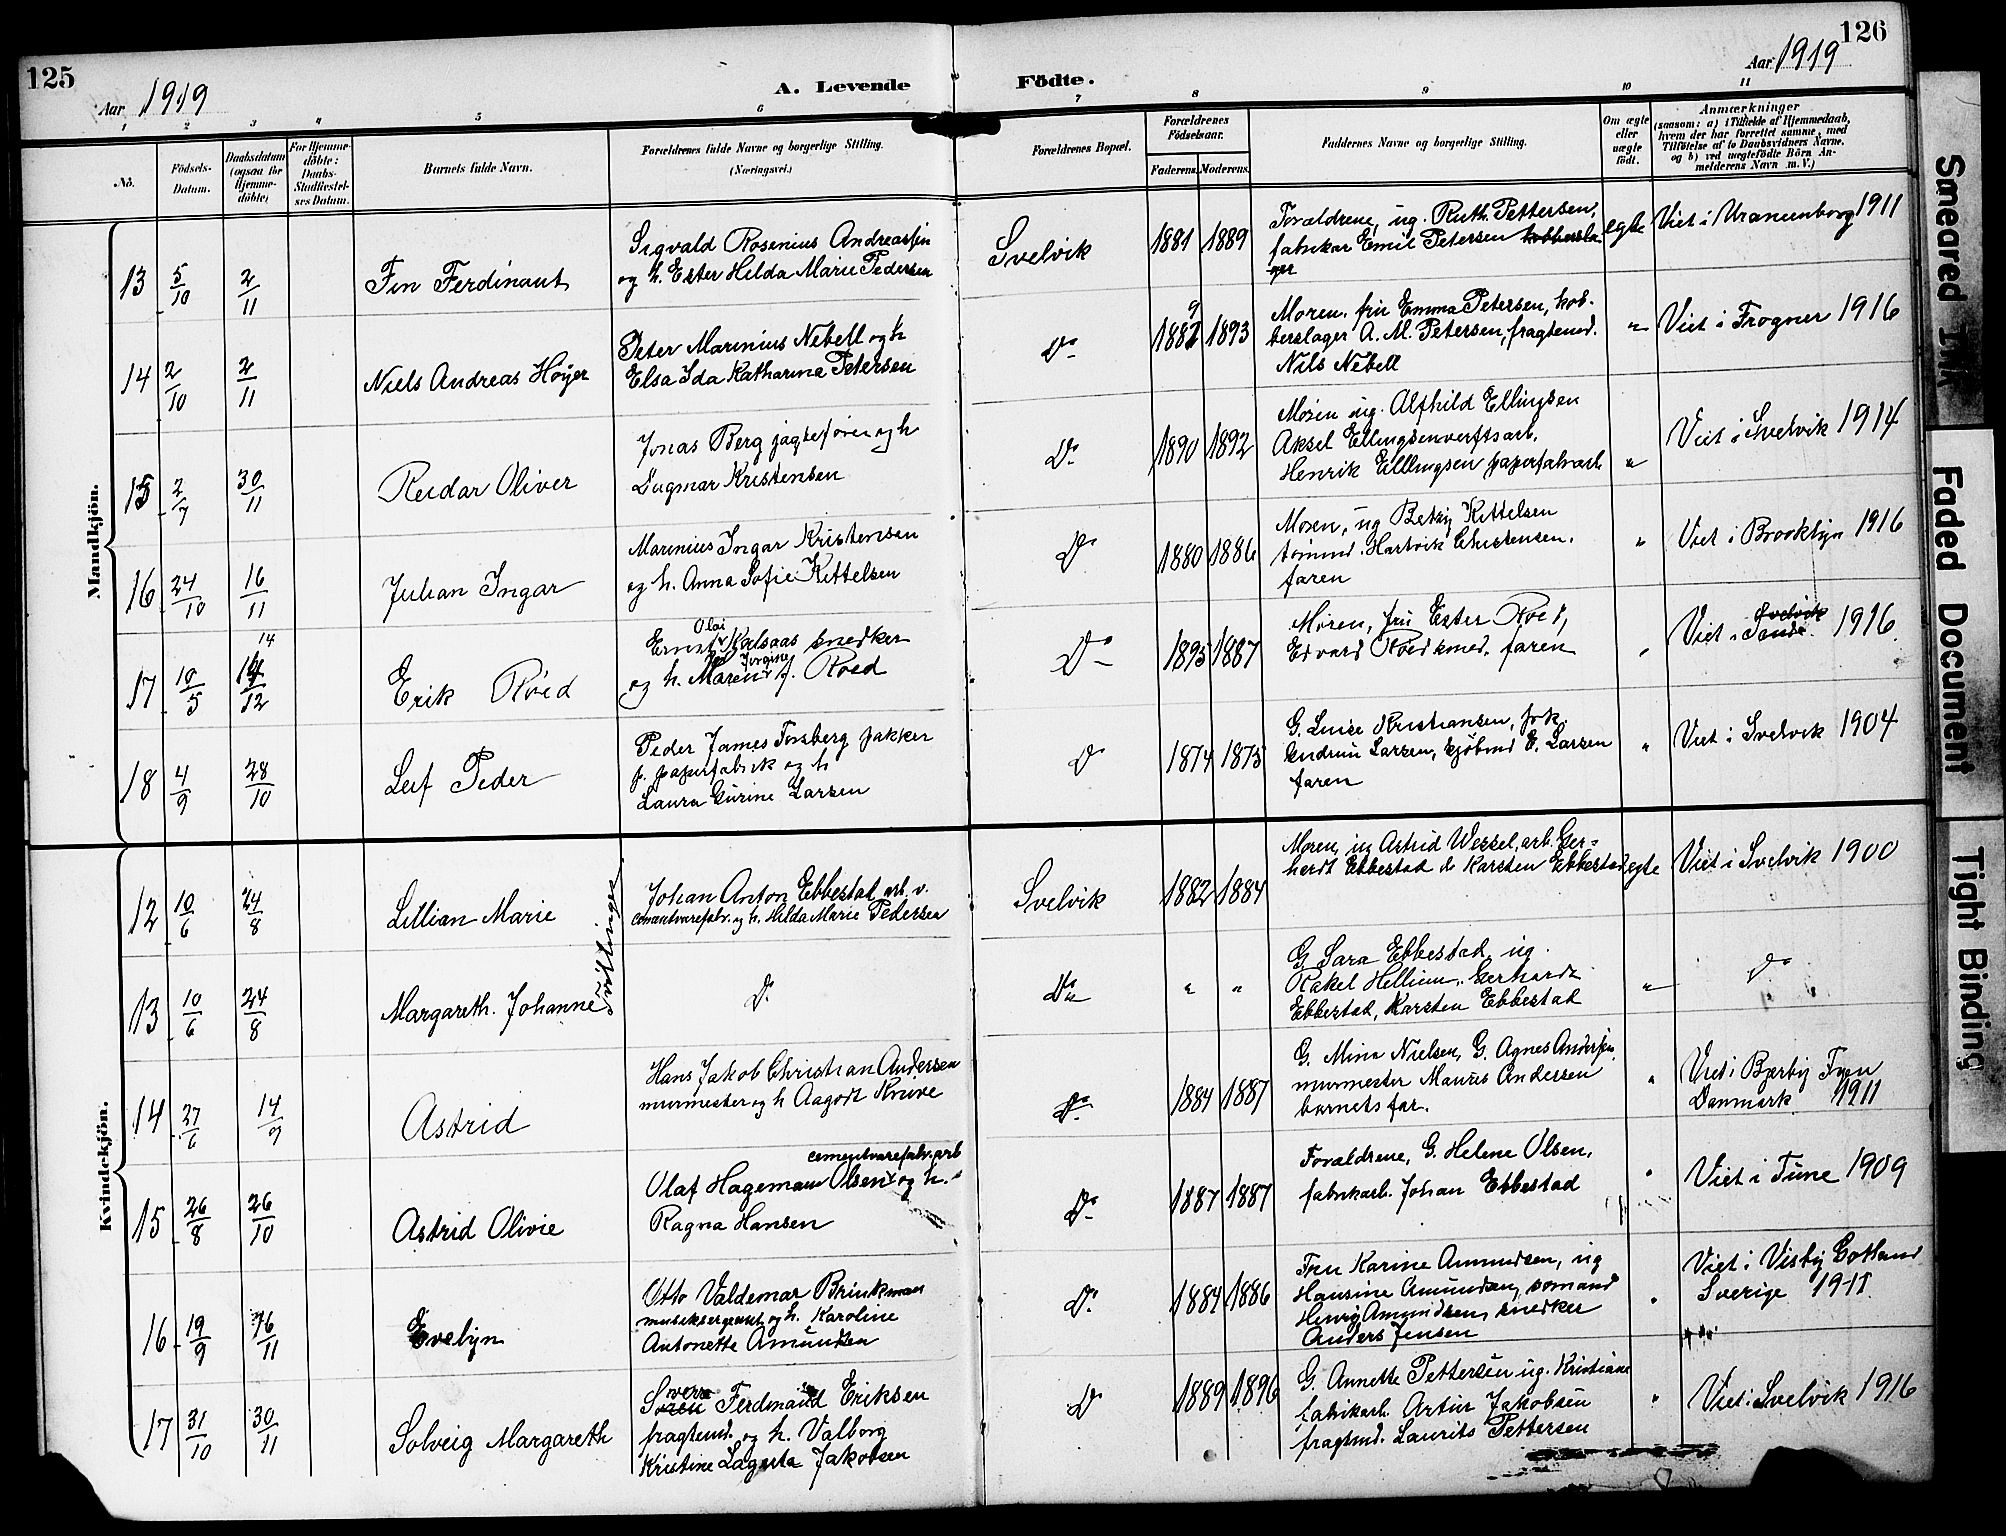 125
Aar 1919
A. Levende
Födte.
Aar 1919
126
1 2 3 4 5 6 7 8 9 10 11
No.
Födsels-
Datum.
Daabsdatum
(ogsaa for
Hjemme-
döbte)
For Hjemme-
döbte:
Daabs-
Stadfæstel-
ses Datum.
Barnets fulde Navn.
Forældrenes fulde Navne og borgerlige Stilling.
(Næringsvei.)
Forældrenes Bopæl.
Forældrenes
Födselsaar.
Faderens. Moderens.
Faddernes Navne og borgerlige Stilling.
Om ægte
eller
uægte
født.
Anmærkninger
(saasom: a) i Tilfælde af Hjemmedaab,
hvem der har forrettet samme, med
Tilföielse af to Daabsvidners Navne,
og b) ved uægtefödte Börn An-
melderens Navn m. V.)
Mandkjön.
13 5/10 2/11 Fin Ferdinant
Sigvald Rosenius Andreassen
og h. Ester Helda Marie Pedersen
Svelvik 1881 1889
Forældrene, ug. Ruth Pettersen,
fabrikar Emil Petersen kobbersla-
ger
egte Viet i Uranienborg 1911
14 2/10 2/11 Niels Andreas Høyer
Peter Marinius Nebell og h
Elsa Ida Katharina Petersen
Do 1889 1893
Moren, fru Emma Petersen, kob-
berslager A. M. Petersen, fragtemd.
Nils Nebell
" Viet i Frogner 1916
15 2/7 30/11 Reidar Oliver
Jonas Berg jagtefører og h
Dagmar Kristensen
Do 1890 1892
Moren ug. Alfhild Ellingsen
Aksel Ellingsen verftsarb.
Henrik Ellingsen papirfabrarb.
" Viet i Svelvik 1914
16 24/10 16/11 Julian Ingar
Marinius Ingar Kristensen
og h. Anna Sofie Kittelsen
Do 1880 1886
Moren, ug Betsy Kittelsen
tømmd. Hartvik Christensen.
faren
" Viet i Brooklyn 1916
17 10/5 14/12 Erik Roed
14
Olai
Ernst Kalsaas snedker
Jorgine
og h. Maren J. Roed
Do 1895 1887
Moren, fru Ester Roed,
Edvard Roed smed, faren
" Viet i Sande Svelvik 1916
18 4/9 28/10 Leif Peder
Peder James Forsberg pakker
p. papirfabrik og h
Laura Gurine Larsen
Do 1874 1875
G. Luise Kristiansen, frk.
Gudrun Larsen, kjøbmd E. Larsen
faren
" Viet i Svelvik 1904
Kvindekjön.
12 10/6 24/8 Lillian Marie
Tvillinger
Johan Anton Ebbestad arb. v.
cementvarefabr. og h. Hilda Marie Pedersen
Svelvik 1882 1884
Moren, ug Astrid Wessel, arb. Ger-
hardt Ebbestad do Karsten Ebbestad
egte Viet i Svelvik 1900
13 10/6 24/8 Margareth. Johanne
Do
Do " "
G Sara Ebbestad, ug.
Rakel Hellium, Gerhardt
Ebbestad, Karsten Ebbestad
" Do
14 27/6 14/9 Astrid
Hans Jakob Christian Andersen
murmester og h Aagodt Kruve
Do 1884 1887
G. Mina Nielsen, G. Agnes Andersen
murmester Maurus Andersen
barnets far.
" Viet i Bjerby Fyen
Danmark 1911
15 26/8 26/10 Astrid Olivie
cementvarefabr. arb
Olaf Hageman Olsen og h.
Ragna Hansen
Do 1887 1887
Forældrene, G. Helene Olsen,
fabrikarb. Johan Ebbestad
" Viet i Tune 1909
16 19/9 16/11 Evelyn
Otto Valdemar Brinkman
musiksergeant og h. Karoline
Antonette Amundsen
Do 1884 1886
Fru Karine Amundsen, ug
Hansine Amundsen, sømand
Henry Amundsen, snedker
Anders Jensen
" Viet i Visby Gotland
Sverige 1911
17 31/10 30/11 Solveig Margareth
Sverre Ferdinand Eriksen
fragtemd. og h. Valborg
Kristine Lagusta Jakobsen
Do 1889 1896
G. Annette Pettersen ug. Kristiane
fabrikarb. Artur Jakobsen
fragtmd. Laurits Pettersen
" Viet i Svelvik 1916
Smeared Ink
Faded Document
Tight Binding